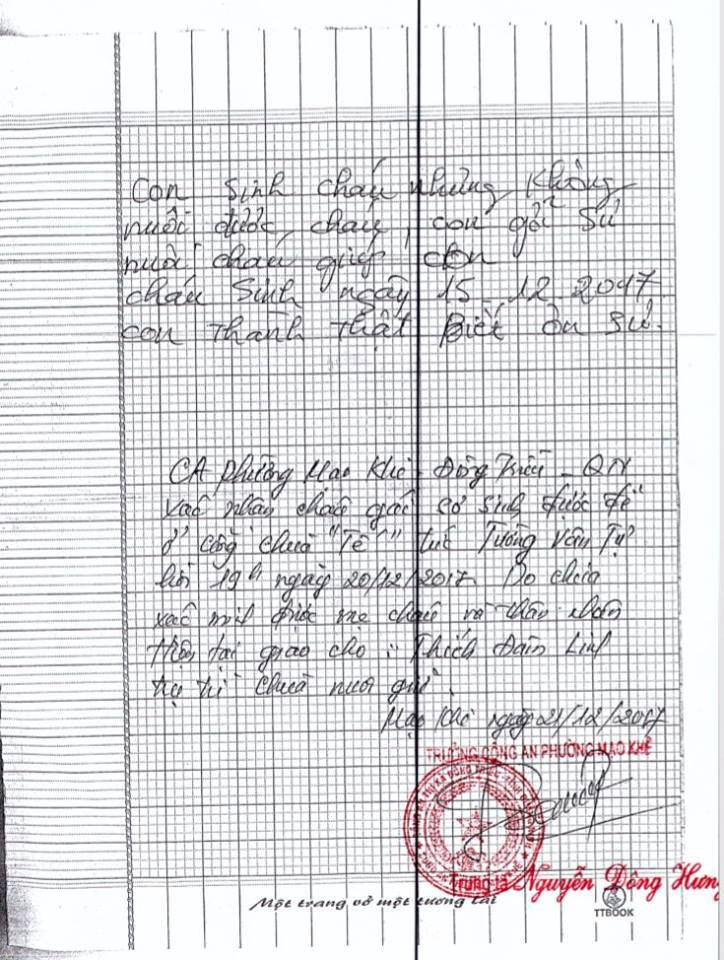 Con sinh cháu nhưng không
nuôi được cháu, con gởi sư
nuôi cháu giúp con
cháu sinh ngày 15_12_2017
con thành thật biết ơn sư.
CA phường Mạo Khê - Đông Triều - QN
xác nhận cháu gái sơ sinh được để
ở cổng chùa "Tế" tức Tường Vân Tự
hồi 19h ngày 20/12/2017. Do chưa
xác minh được mẹ cháu và thân nhân
Hiện tại giao cho: Thích Đàm Linh
trụ trì chùa nuôi giữ.
Mạo Khê ngày 21/12/2017
TRƯỞNG CÔNG AN PHƯỜNG MẠO KHÊ
Trung tá Nguyễn Đông Hưng
Một trang vở một tương lai
TTBOOK